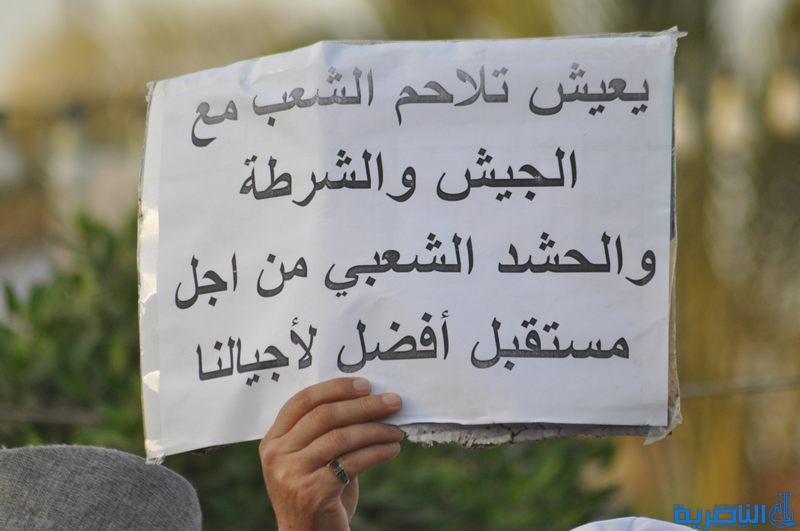 يعيش تلاحم الشعب مع
الجيش والشرطة
والحشد الشعبي من اجل
مستقبل أفضل لأجيالنا
الناصرية